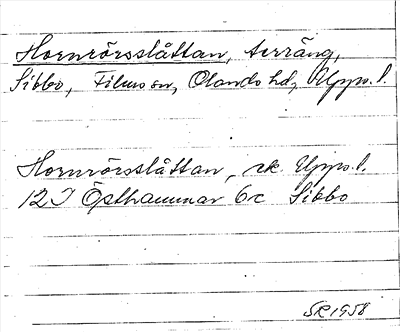 Hornrörsslåttan, terräng,
Sibbo, Films sn, Olands hd, Upps. l.
Hornrörsslåttan, ek. Upps. l.
12 I Östhammar 6c Sibbo
SR 1958